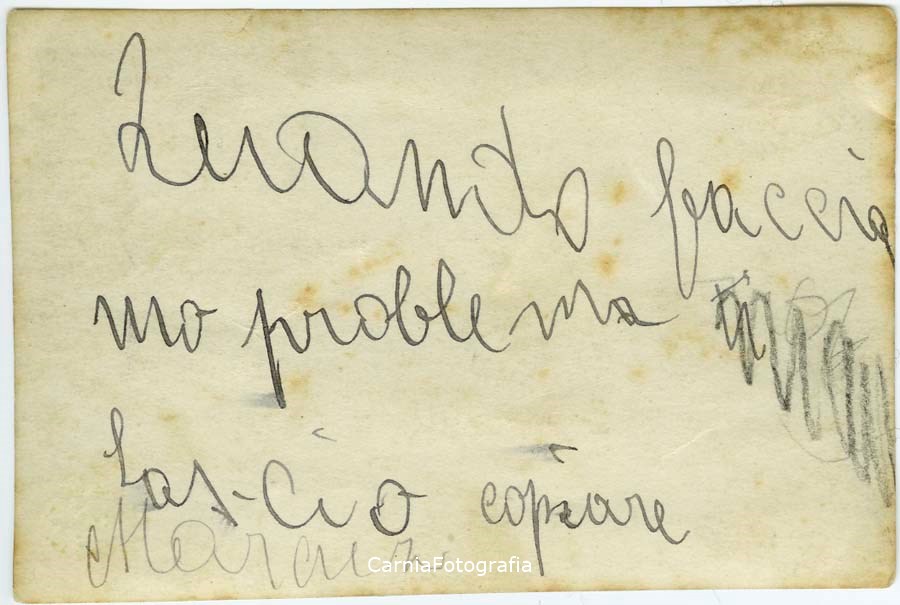 faccia
mo problema
Lascio copiare
CarniaFotografia